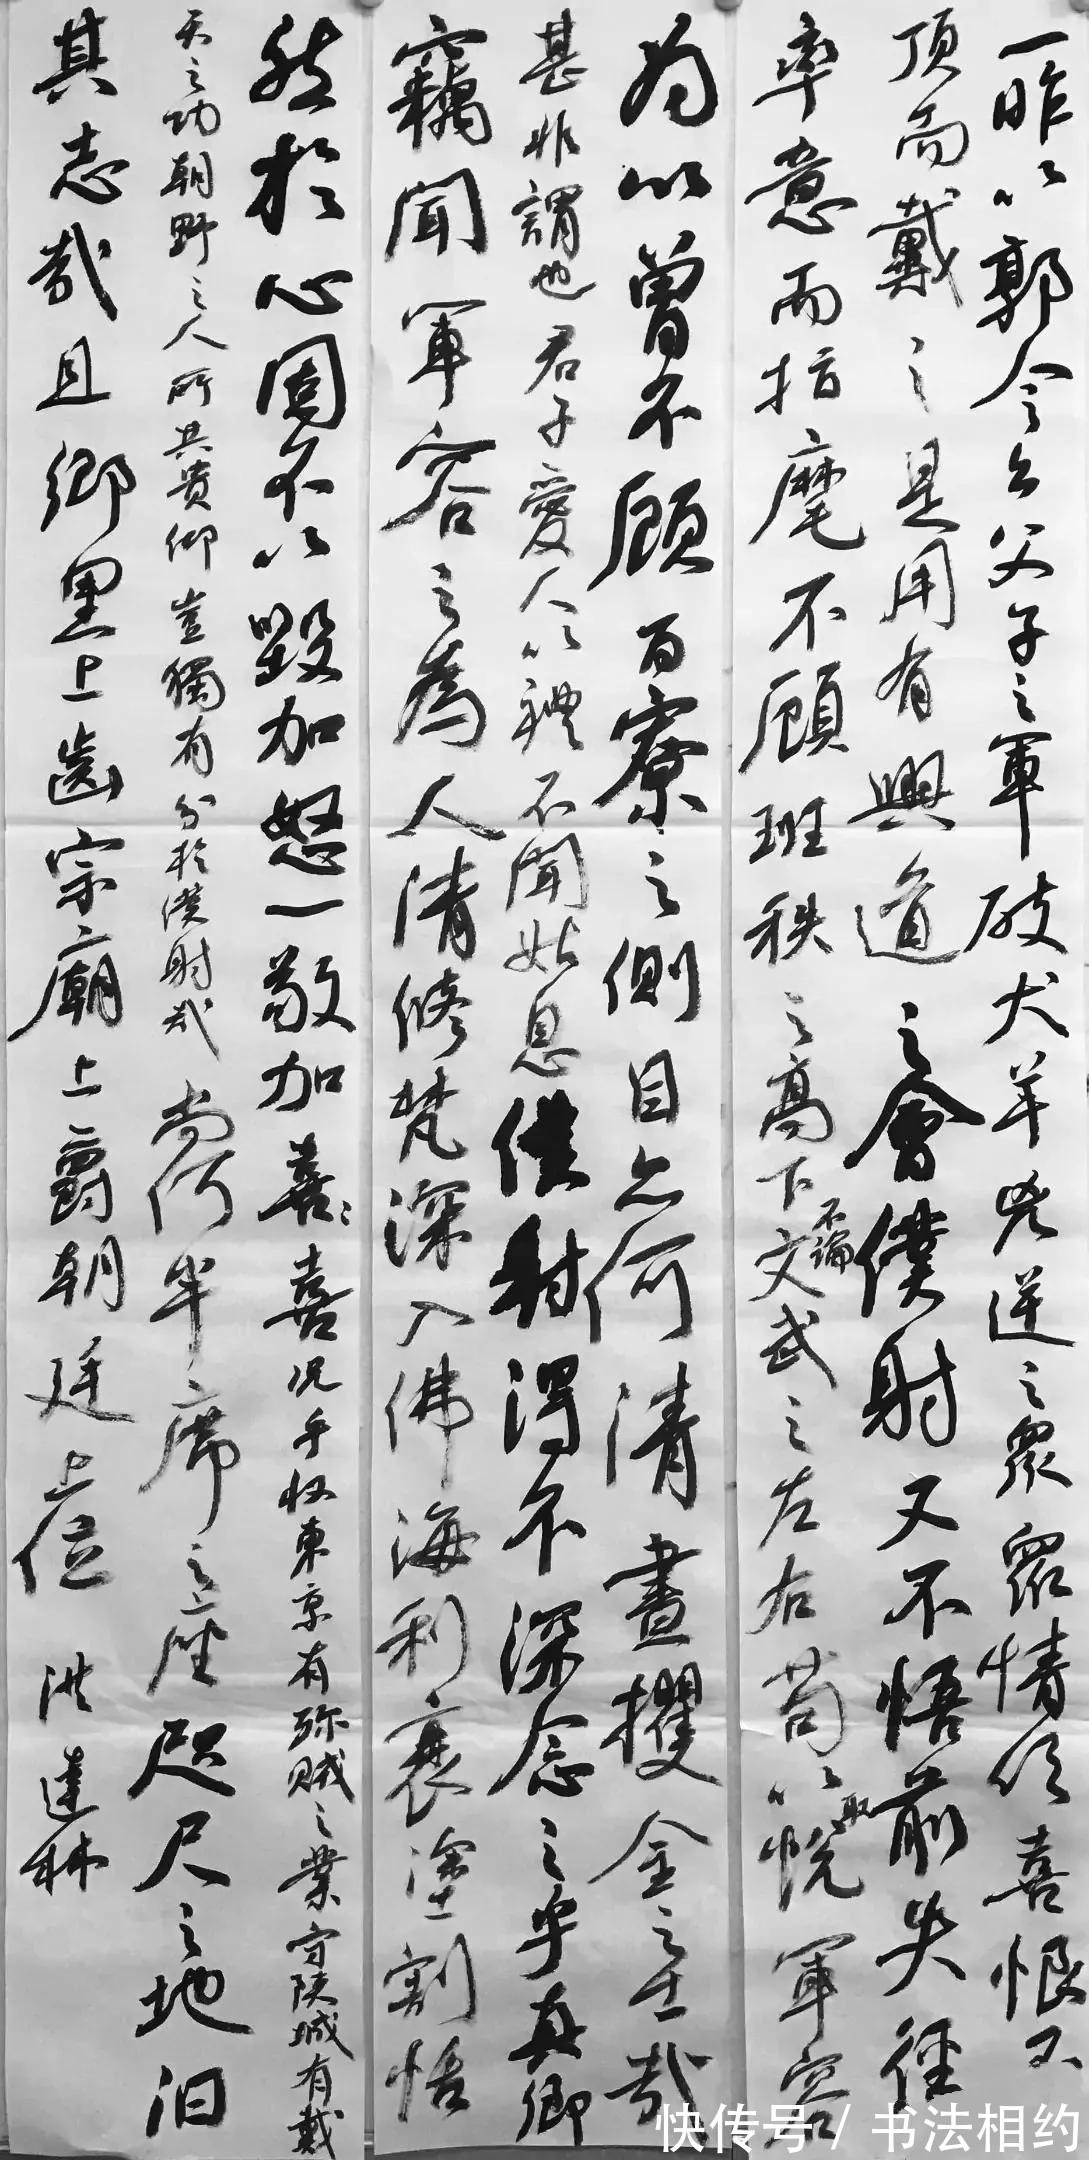 一昨以郭令公父子之軍破犬羊兇逆之眾眾情欣喜恨不
頂而戴之是用有興道之會僕射又不悟前失徑
率意而指麾不顧班秩之高下不論文武之左右苟以取悅軍容
為以曾不顧百寮之側目亦何清晝攫金之士哉
甚非謂也君子愛人以禮不聞姑息僕射得不深念之乎真卿
竊聞軍容之為人清修梵深入佛海利衰塗割恬
然於心固不以毀加怒一敬加喜喜況乎收東京有殄賊之業守陝城有戴
天之功朝野之人所共貴仰豈獨有分於僕射哉尚何半席之座咫尺之地汩
其志哉且鄉里上齒宗廟上爵朝廷上位 洪達林
快传号 / 书法相约